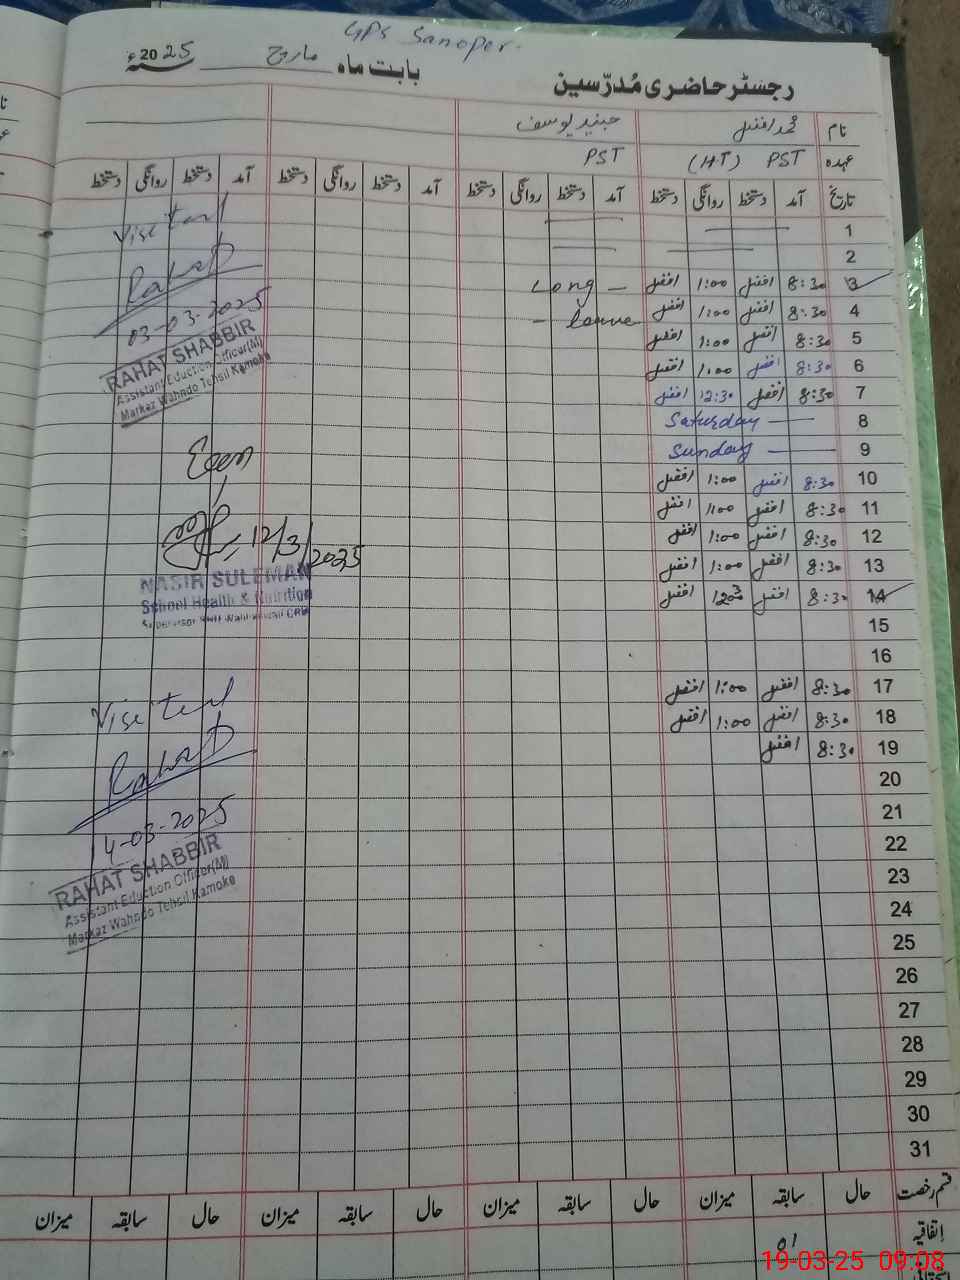 GPS Sanoper.
رجسٹر حاضری مُدرّسین بابت ماہ مارچ 2025ء
نام محمد افضل جنید یوسف
عہدہ PST (HT) PST
تاریخ آمد دستخط روانگی دستخط آمد دستخط روانگی دستخط آمد دستخط روانگی دستخط آمد دستخط روانگی دستخط
1
2
3 8:30 افضل 1:00 افضل Long
4 8:30 افضل 1:00 افضل leave
5 8:30 افضل 1:00 افضل
6 8:30 افضل 1:00 افضل
7 8:30 افضل 12:30 افضل
8 Saturday
9 Sunday
10 8:30 افضل 1:00 افضل
11 8:30 افضل 1:00 افضل
12 8:30 افضل 1:00 افضل
13 8:30 افضل 1:00 افضل
14 8:30 افضل افضل
15
16
17 8:30 افضل 1:00 افضل
18 8:30 افضل 1:00 افضل
19 8:30 افضل
20
21
22
23
24
25
26
27
28
29
30
31
قسم رخصت حال سابقہ میزان حال سابقہ میزان حال سابقہ میزان حال سابقہ میزان
اتفاقیہ 01
03-03-2025
RAHAT SHABBIR
Assistant Eduction Officer(M)
Markaz Wahndo Tehsil Kamoke
12/3/2025
NASIR SULEMAN
School Health & Nutrition
14-03-2025
RAHAT SHABBIR
Assistant Eduction Officer(M)
Markaz Wahndo Tehsil Kamoke
19-03-25 09:08